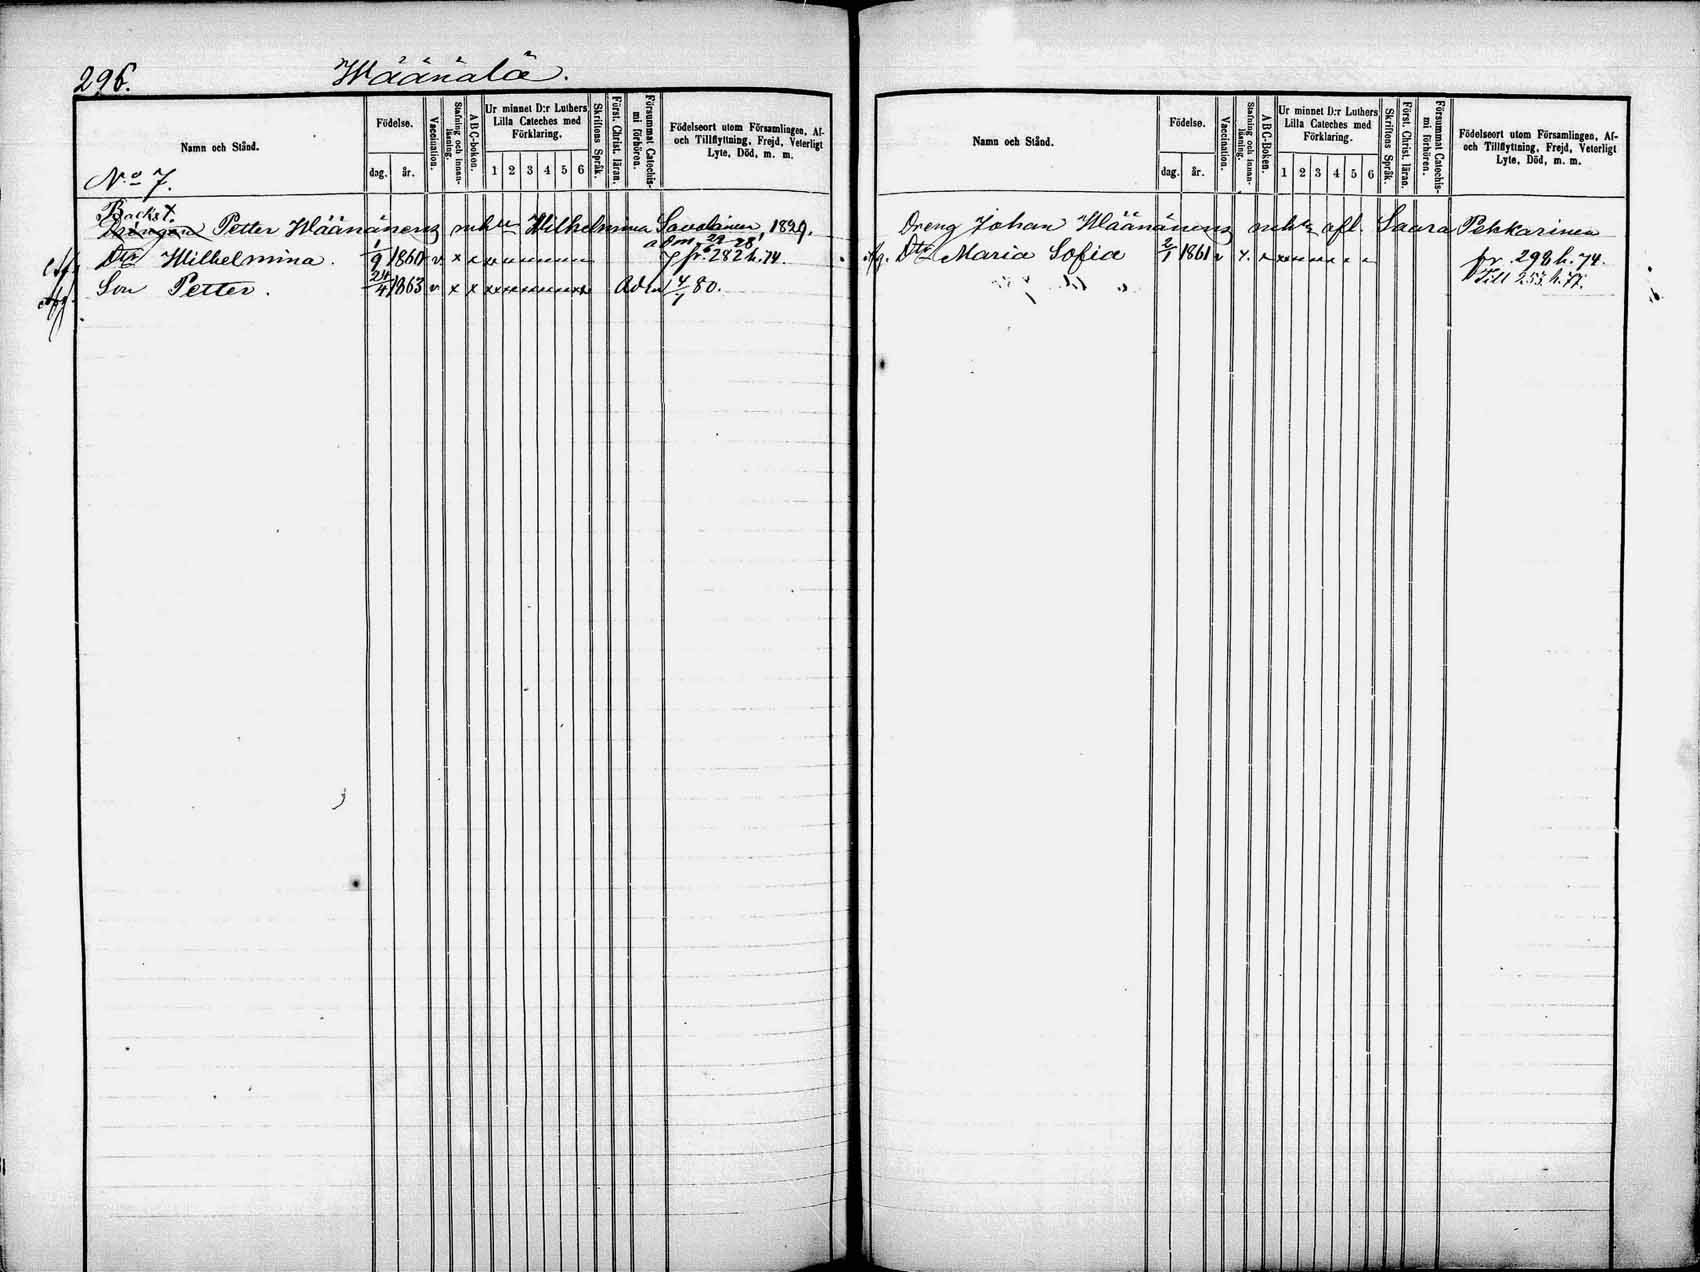 296.
Wäänälä.
Namn och Stånd.
Födelse.
dag. år.
Vaccination.
Stafning och innan-läsning.
ABC-boken.
Ur minnet D:r Luthers Lilla Cateches med Förklaring.
1 2 3 4 5 6
Skriftens Språk.
Först. Christ. läran.
Försummat Catechis-mi förhören.
Födelseort utom Församlingen, Af- och Tillflyttning, Frejd, Veterligt Lyte, Död, m. m.
No 7.
Backst.
Petter Wäänänens Wilhelmina Savolainen, 1829.
Dtr Wilhelmina. 1/9 1860 v x x fr. 282 h. 74.
Son Petter. 24/4 1863 v x x Adm 4/7 80.
Namn och Stånd.
Födelse.
dag. år.
Vaccination.
Stafning och innan-läsning.
ABC-Boken.
Ur minnet D:r Luthers Lilla Cateches med Förklaring.
1 2 3 4 5 6
Skriftens Språk.
Först. Christ. läran.
Försummat Catechis-mi förhören.
Födelseort utom Församlingen, Af- och Tillflyttning, Frejd, Veterligt Lyte, Död, m. m.
Dreng Johan Wäänänens afl. Saara Pekkarinen
Dtr Maria Sofia 2/1 1861 v x fr. 298 h. 74.
Till 255 h. 77.